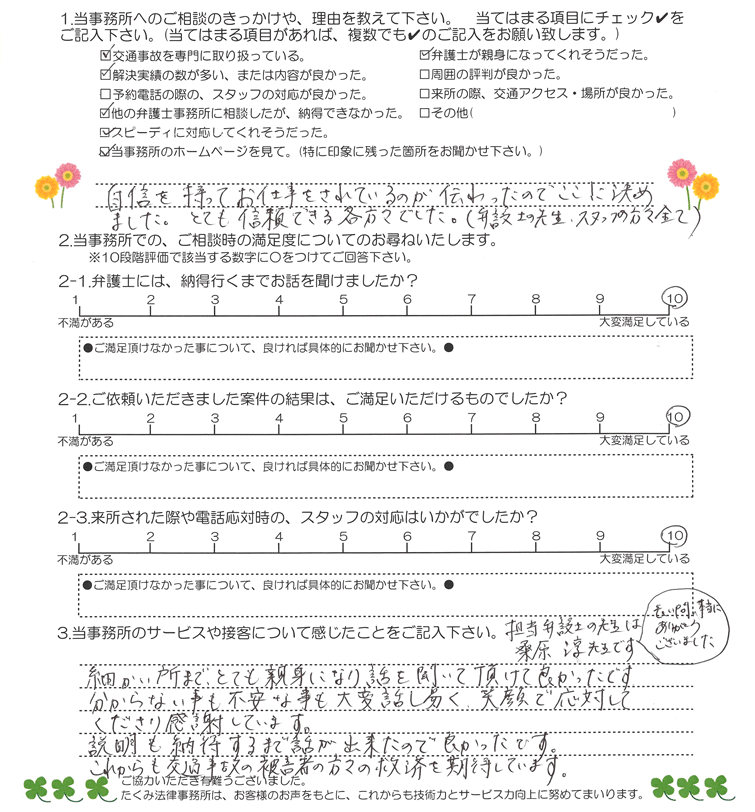 1.当事務所へのご相談のきっかけや、理由を教えて下さい。 当てはまる項目にチェック✔を
ご記入下さい。(当てはまる項目があれば、複数でも✔のご記入をお願い致します。)
☑交通事故を専門に取り扱っている。 ☑弁護士が親身になってくれそうだった。
☑解決実績の数が多い、または内容が良かった。 □周囲の評判が良かった。
□予約電話の際の、スタッフの対応が良かった。 □来所の際、交通アクセス・場所が良かった。
☑他の弁護士事務所に相談したが、納得できなかった。 □その他( )
☑スピーディに対応してくれそうだった。
☑当事務所のホームページを見て。(特に印象に残った箇所をお聞かせ下さい。)
自信を持ってお仕事をされているのが伝わったのでここに決め
ました。とても信頼できる各方々でした。(弁護士の先生、スタッフの方々全て)
2.当事務所での、ご相談時の満足度についてのお尋ねいたします。
※10段階評価で該当する数字に〇をつけてご回答下さい。
2-1.弁護士には、納得行くまでお話を聞けましたか?
1 2 3 4 5 6 7 8 9 10
不満がある 大変満足している
●ご満足頂けなかった事について、良ければ具体的にお聞かせ下さい。●
2-2.ご依頼いただきました案件の結果は、ご満足いただけるものでしたか?
1 2 3 4 5 6 7 8 9 10
不満がある 大変満足している
●ご満足頂けなかった事について、良ければ具体的にお聞かせ下さい。●
2-3.来所された際や電話応対時の、スタッフの対応はいかがでしたか?
1 2 3 4 5 6 7 8 9 10
不満がある 大変満足している
●ご満足頂けなかった事について、良ければ具体的にお聞かせ下さい。●
3.当事務所のサービスや接客について感じたことをご記入下さい。
担当弁護士の先生は
桑原 淳先生です
長い間、本当に
ありがとう
ございました
細かい所まで、とても親身になり話を聞いて頂けて良かったです
分からない事も不安な事も大変話し易く 笑顔で応対して
くださり感謝しています。
説明も納得するまで話が出来たので良かったです。
これからも交通事故の被害者の方々の救済を期待しています。
ご協力いただき有難うございました。
たくみ法律事務所は、お客様のお声をもとに、これからも技術力とサービス力向上に努めてまいります。